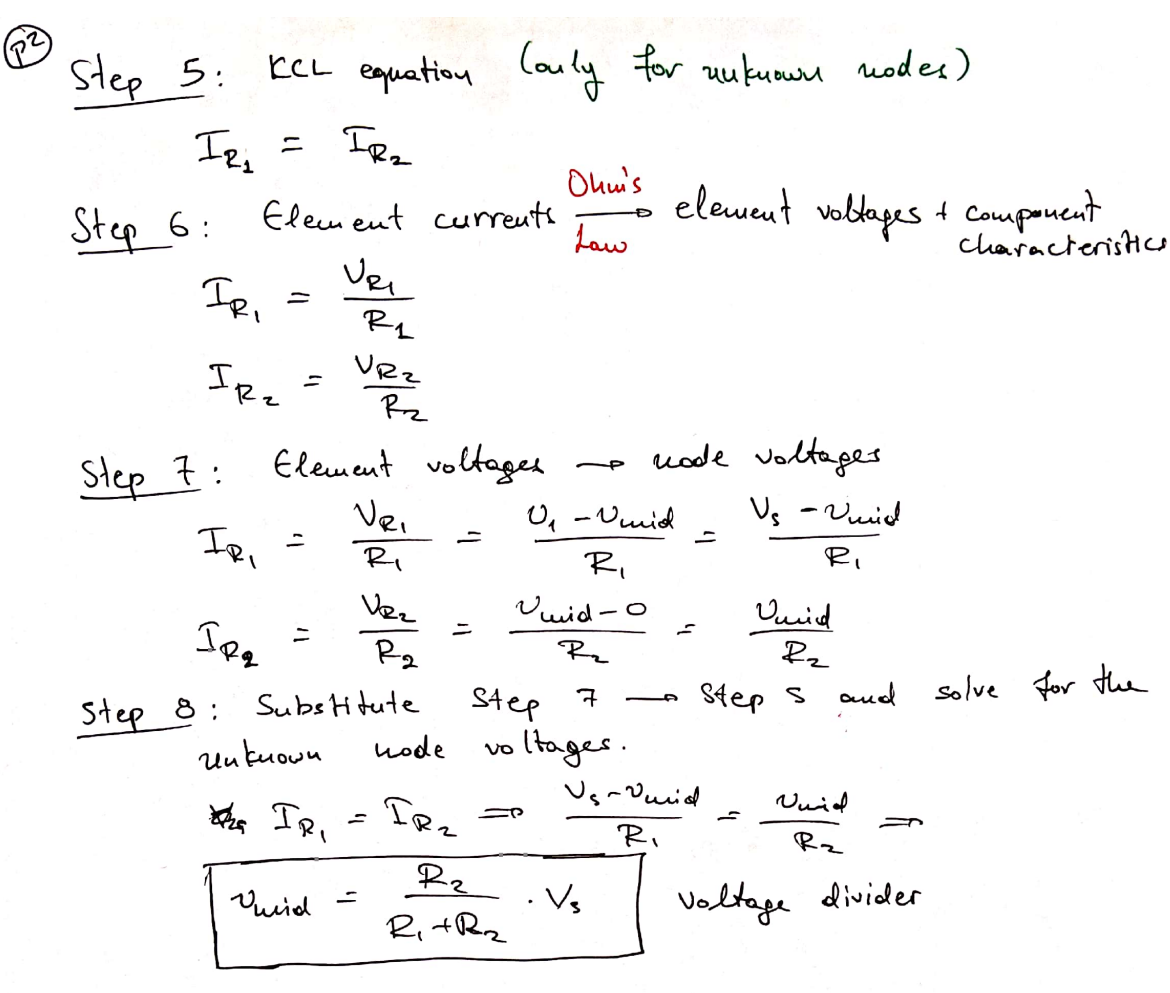 P2
Step 5: KCL equation (only for unknown nodes)
I_R1 = I_R2
Step 6: Element currents —Ohm's Law→ element voltages + component characteristics
I_R1 = V_R1 / R1
I_R2 = V_R2 / R2
Step 7: Element voltages → node voltages
I_R1 = V_R1 / R1 = U1 - Umid / R1 = Vs - Umid / R1
I_R2 = V_R2 / R2 = Umid - 0 / R2 = Umid / R2
Step 8: Substitute Step 7 → Step 5 and solve for the
unknown node voltages.
I_R1 = I_R2 ⇒ Vs - Umid / R1 = Umid / R2 ⇒
Umid = R2 / R1 + R2 · Vs voltage divider